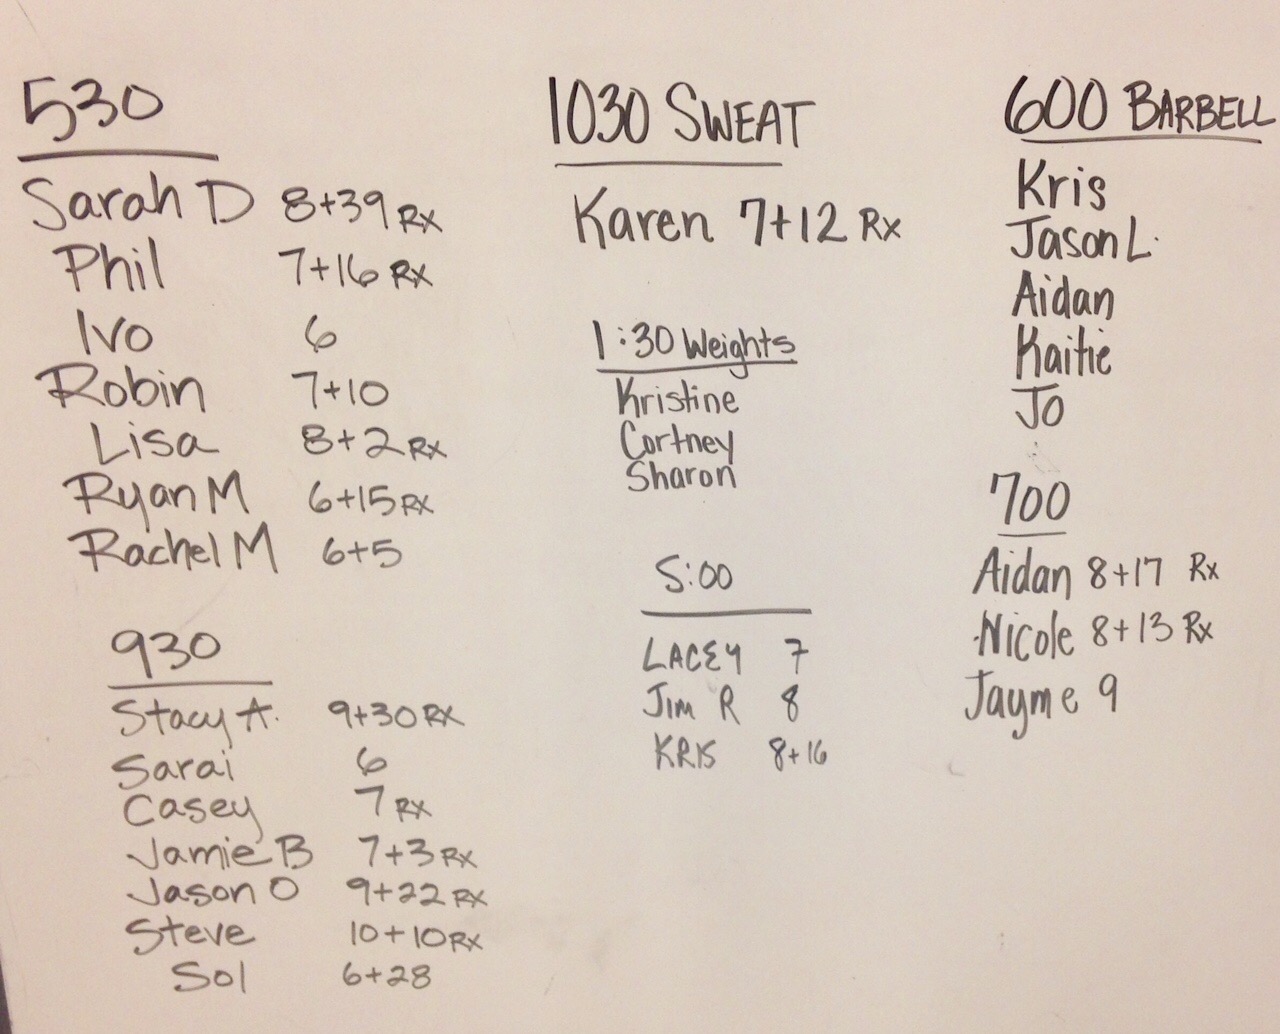 530
Sarah D 8+39 Rx
Phil 7+16 Rx
Ivo 6
Robin 7+10
Lisa 8+2 Rx
Ryan M 6+15 Rx
Rachel M 6+5
930
Stacy A. 9+30 Rx
Sarai 6
Casey 7 Rx
Jamie B 7+3 Rx
Jason O 9+22 Rx
Steve 10+10 Rx
Sol 6+28
1030 SWEAT
Karen 7+12 Rx
1:30 Weights
Kristine
Cortney
Sharon
5:00
LACEY 7
Jim R 8
KRIS 8+16
600 BARBELL
Kris
Jason L.
Aidan
Kaitie
Jo
700
Aidan 8+17 Rx
Nicole 8+13 Rx
Jayme 9